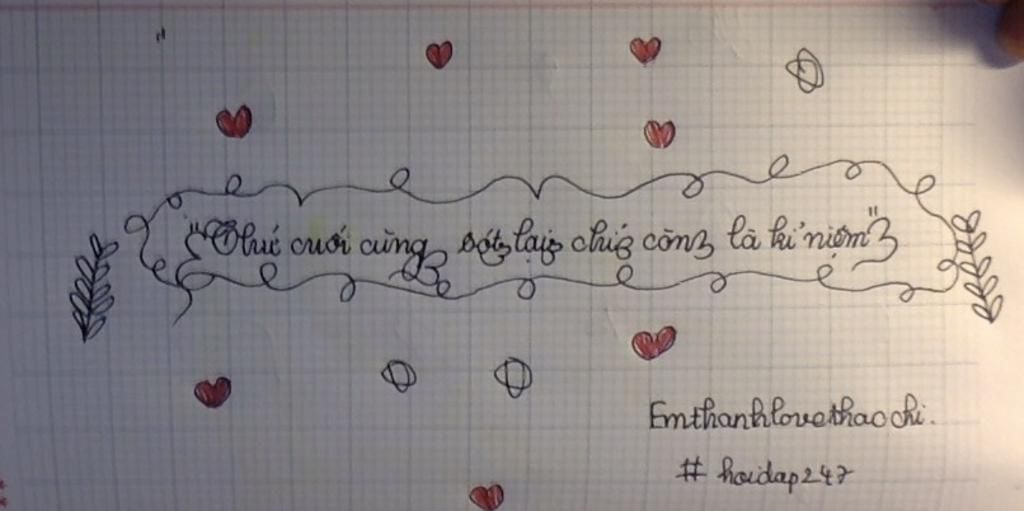 "Thứ cuối cùng sót lại chỉ còn là kỉ niệm"
Emthanhlovethaochi.
# hoidap247